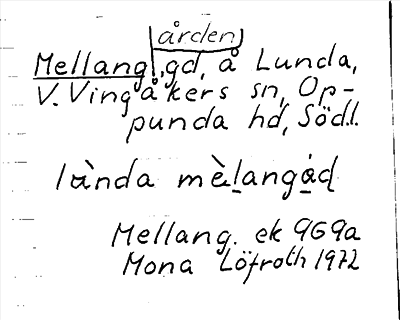 (ården)
Mellang., gd, å Lunda,
V. Vingåkers sn, Op-
punda hd, Södl.
lùnda mèlangád
Mellang. ek 9G9a
Mona Löfroth 1972